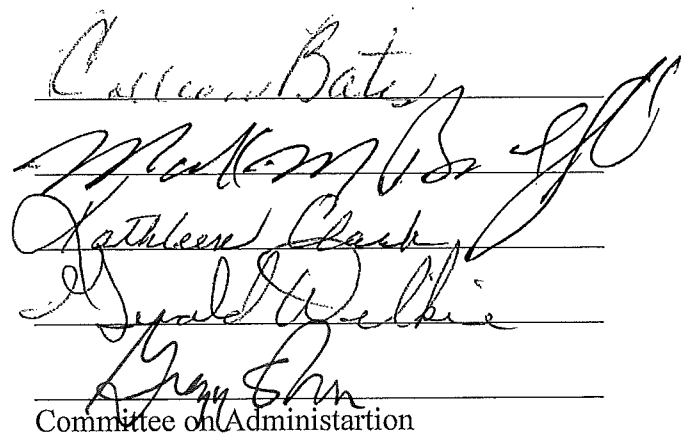 Colleen Bates
Mark M B
Kathleen Clark
Gerald Wilkie
Gregg
Committee on Administartion